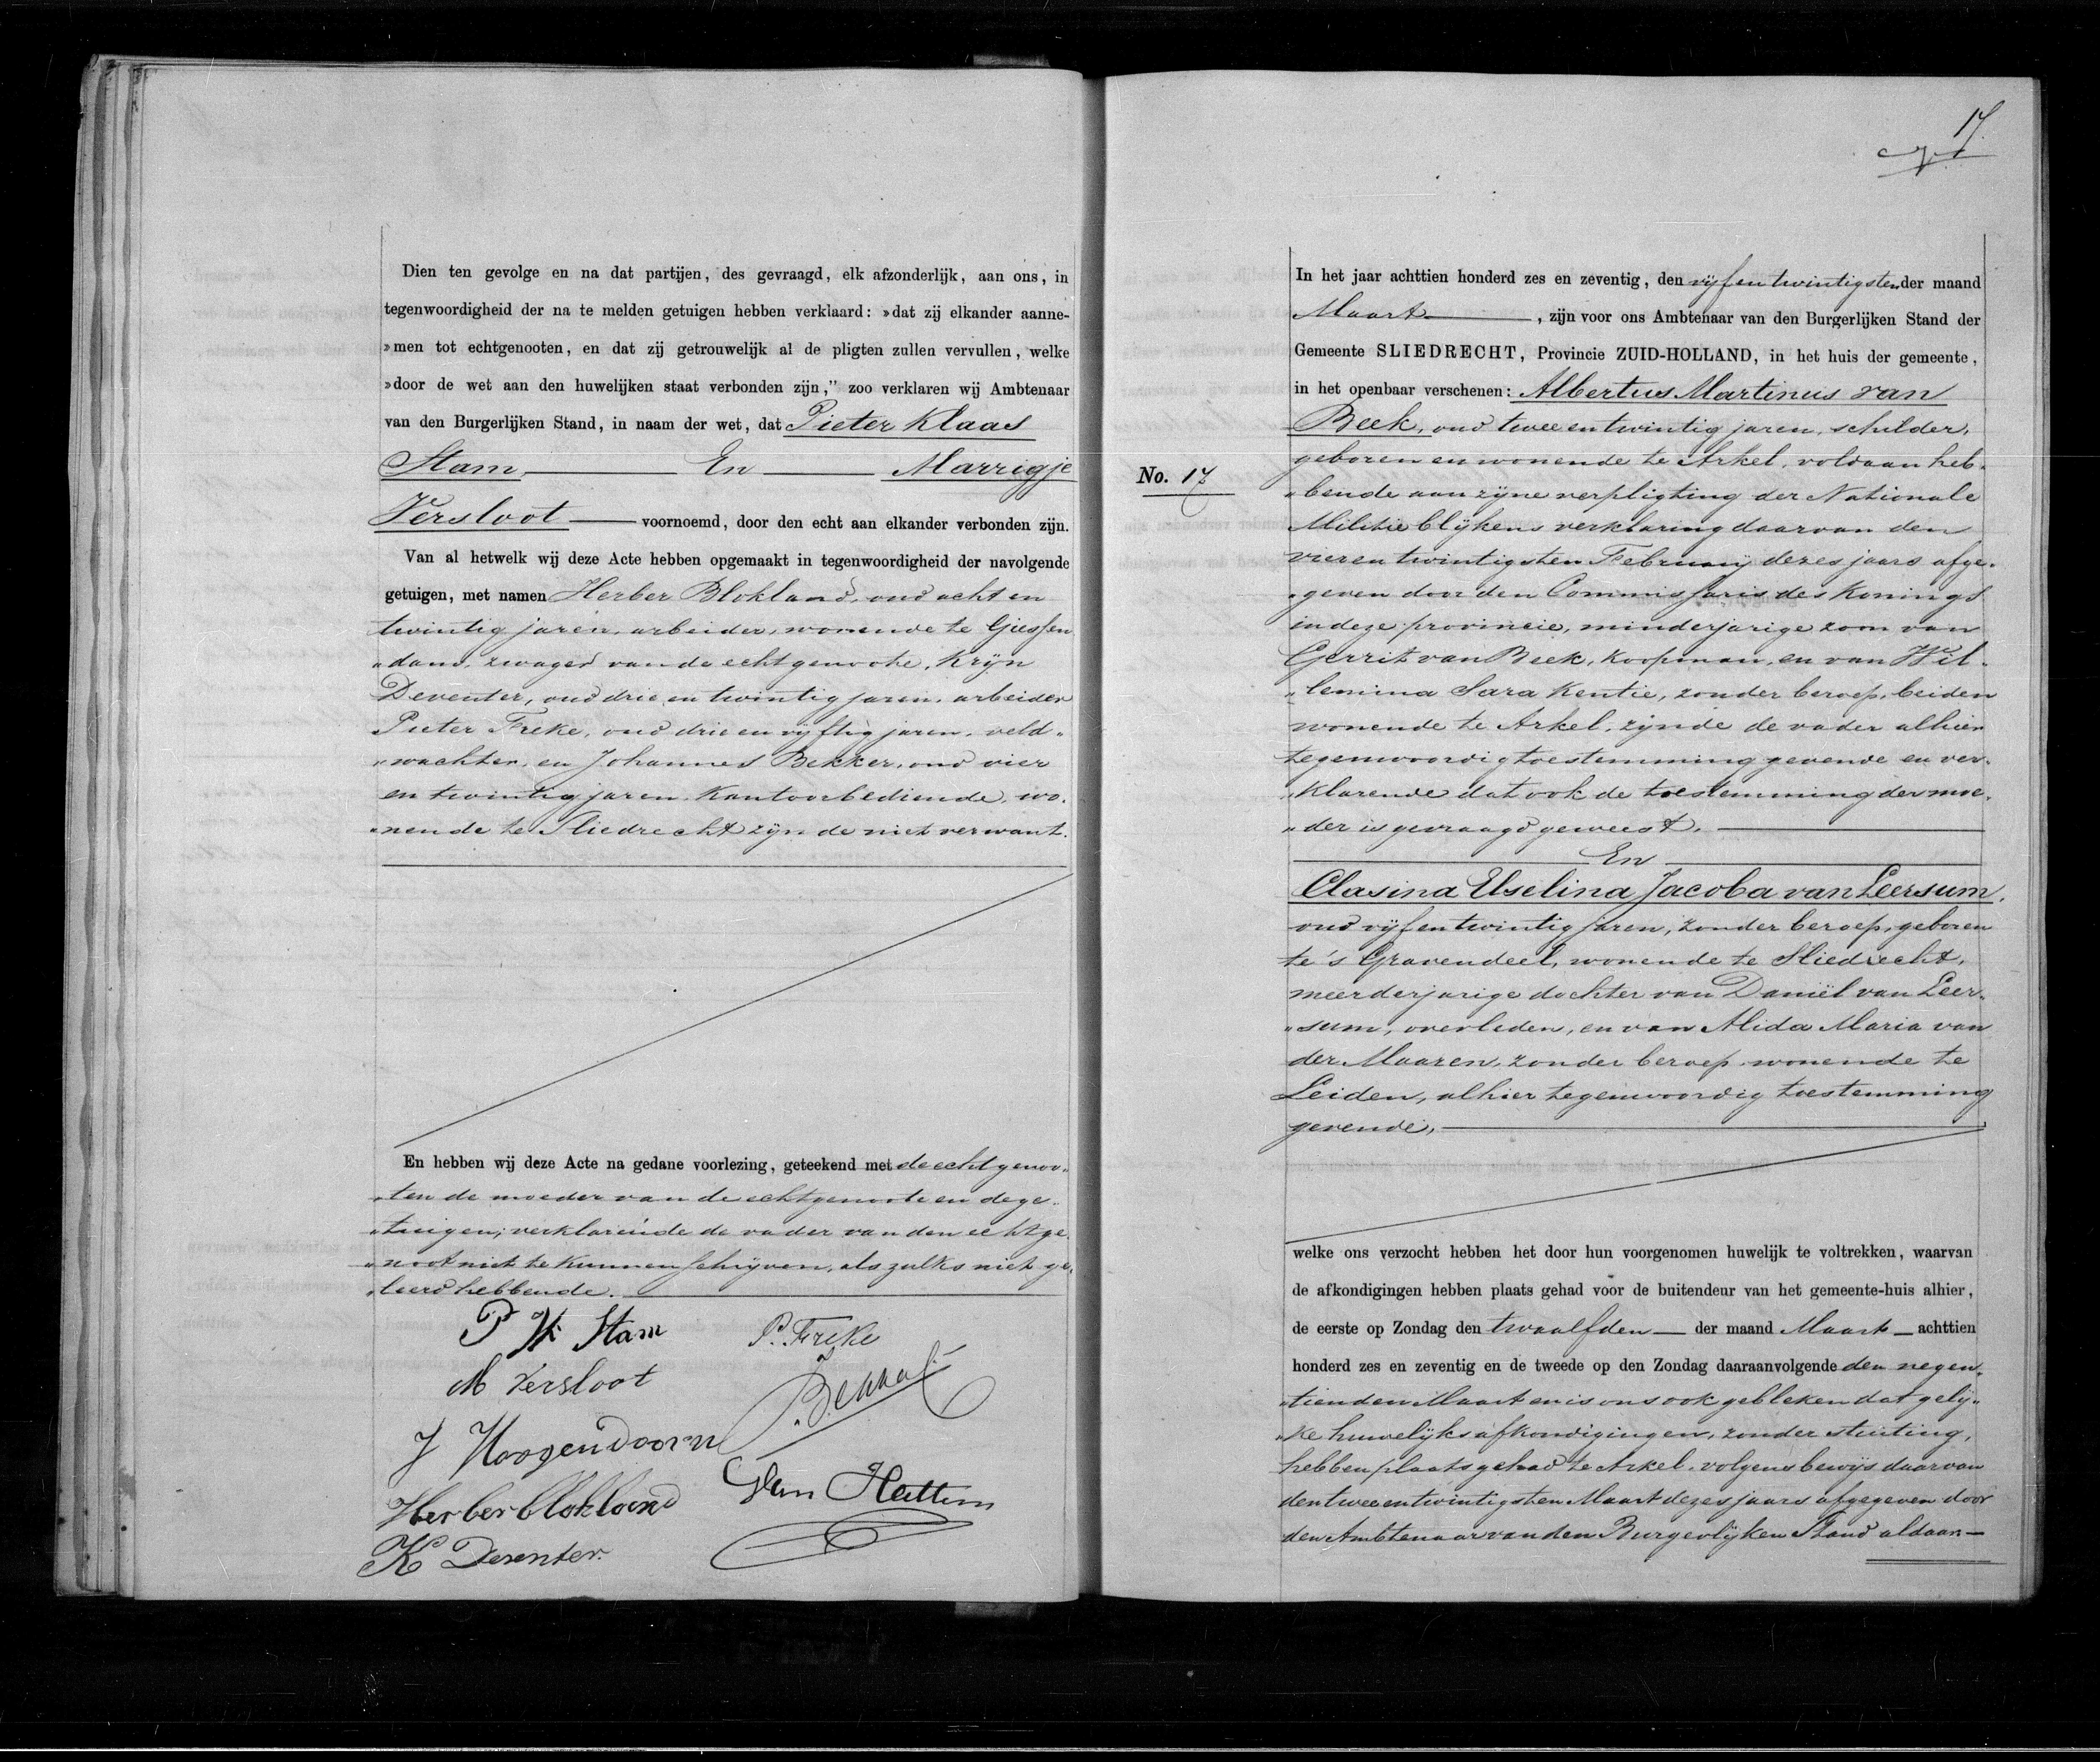 Dien ten gevolge en na dat partijen, des gevraagd, elk afzonderlijk, aan ons, in
tegenwoordigheid der na te melden getuigen hebben verklaard: »dat zij elkander aanne-
»men tot echtgenooten, en dat zij getrouwelijk al de pligten zullen vervullen, welke
»door de wet aan den huwelijken staat verbonden zijn,” zoo verklaren wij Ambtenaar
van den Burgerlijken Stand, in naam der wet, dat Pieter Klaas
Stam — En — Marrigje
Versloot — voornoemd, door den echt aan elkander verbonden zijn.
Van al hetwelk wij deze Acte hebben opgemaakt in tegenwoordigheid der navolgende
getuigen, met namen Herber Blokland, oud acht en
twintig jaren, arbeider, wonende te Giessen
„dam, zwager van de echtgenoote, Krijn
Deventer, oud drie en twintig jaren, arbeider
Pieter Freke, oud drie en vijftig jaren, veld„
„wachter, en Johannes Bekker, oud vier
en twintig jaren, kantoorbediende, wo„
„nende te Sliedrecht zijnde niet verwant.
En hebben wij deze Acte na gedane voorlezing, geteekend met de echtgenoo„
„ten de moeder van de echtgenoote en de ge„
„tuigen; verklarende de vader van den echtge„
„noot niet te kunnen schrijven, als zulks niet ge„
„leerd hebbende.
P K Stam
P. Freke
M Versloot
J. Bekker
J Hoogendoorn
Herber Blokland
K Deventer.
17.
No. 17
In het jaar achttien honderd zes en zeventig, den vijf en twintigsten der maand
Maart —, zijn voor ons Ambtenaar van den Burgerlijken Stand der
Gemeente SLIEDRECHT, Provincie ZUID-HOLLAND, in het huis der gemeente,
in het openbaar verschenen: Albertus Martinus van
Beek, oud twee en twintig jaren, schilder,
geboren en wonende te Arkel, voldaan heb„
„bende aan zijne verpligting der Nationale
Militie blijkens verklaring daarvan den
vier en twintigsten Februarij dezes jaars afge„
„geven door den Commissaris des Konings
in deze provincie, minderjarige zoon van
Gerrit van Beek, koopman, en van Wil„
„lemina Sara Kentie, zonder beroep, beiden
wonende te Arkel, zijnde de vader alhier
tegenwoordig toestemming gevende en ver„
„klarende dat ook de toestemming der moe„
„der is gevraagd geweest.
En
Clasina Elselina Jacoba van Leersum,
oud vijf en twintig jaren, zonder beroep, geboren
te 's Gravendeel, wonende te Sliedrecht,
meerderjarige dochter van Daniël van Leer„
„sum, overleden, en van Alida Maria van
der Maaren, zonder beroep, wonende te
Leiden, alhier tegenwoordig toestemming
gevende,
welke ons verzocht hebben het door hun voorgenomen huwelijk te voltrekken, waarvan
de afkondigingen hebben plaats gehad voor de buitendeur van het gemeente-huis alhier,
de eerste op Zondag den twaalfden — der maand Maart — achttien
honderd zes en zeventig en de tweede op den Zondag daaraanvolgende den negen„
„tienden Maart en is ons ook gebleken dat gelij„
„ke huwelijksafkondigingen, zonder stuiting,
hebben plaats gehad te Arkel, volgens bewijs daarvan
den twee en twintigsten Maart dezes jaars afgegeven door
den Ambtenaar van den Burgerlijken Stand aldaar.—